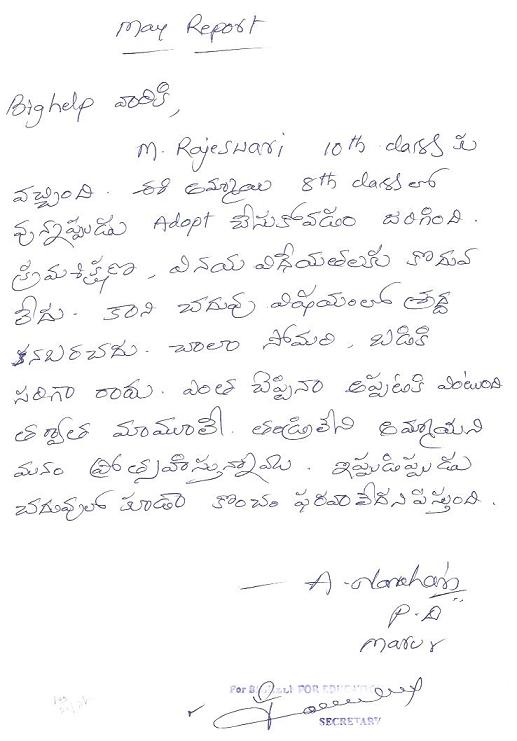 May Report
Bighelp వారికి,
M. Rajeswari 10th class కు
వచ్చింది. ఈ అమ్మాయి 8th class లో
వున్నప్పుడు Adopt చేసుకోవడం జరిగింది.
క్రమశిక్షణ, వినయ విధేయతలకు కొదువ
లేదు. కాని చదువు విషయంలో శ్రద్ద
కనబరచదు. చాలా సోమరి, బడికి
సరిగా రాదు. ఎంత చెప్పినా అప్పటికి వింటుంది
తర్వాత మామూలే. తండ్రిలేని అమ్మాయని
మనం ప్రోత్సహిస్తున్నాము. ఇప్పుడిప్పుడు
చదువులో కూడా కొంచం ఫరవాలేదనిపిస్తుంది.
P.D
Marur
FOR EDUCATION
SECRETARY